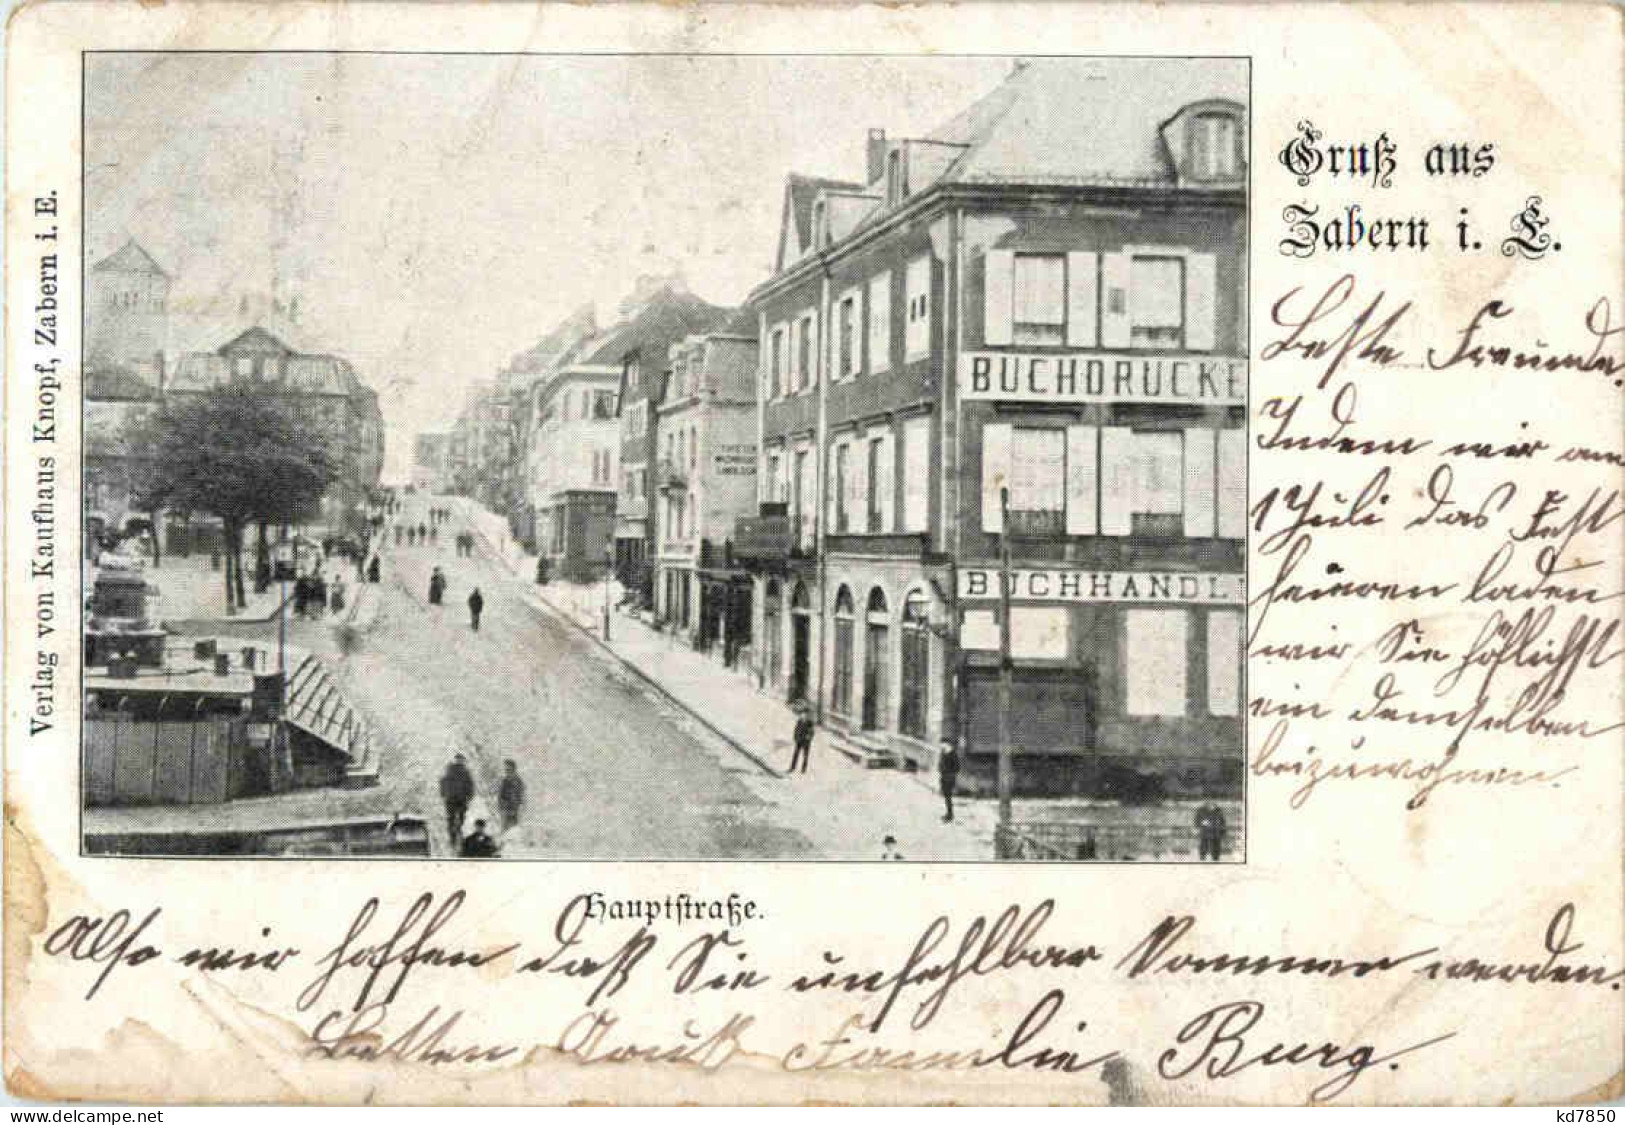 Verlag von Kaufhaus Knopf, Zabern i. E.
Gruß aus
Zabern i. E.
BUCHDRUCKE
BUCHHANDL
Hauptstraße.
Beste Freunde.
Indem wir am
1 Juli das Fest
feieren laden
wir Sie höflichst
ein demselben
beizuwohnen.
Also wir hoffen daß Sie unfehlbar kommen werden.
Besten Gruß Familie Burg.
kd7850